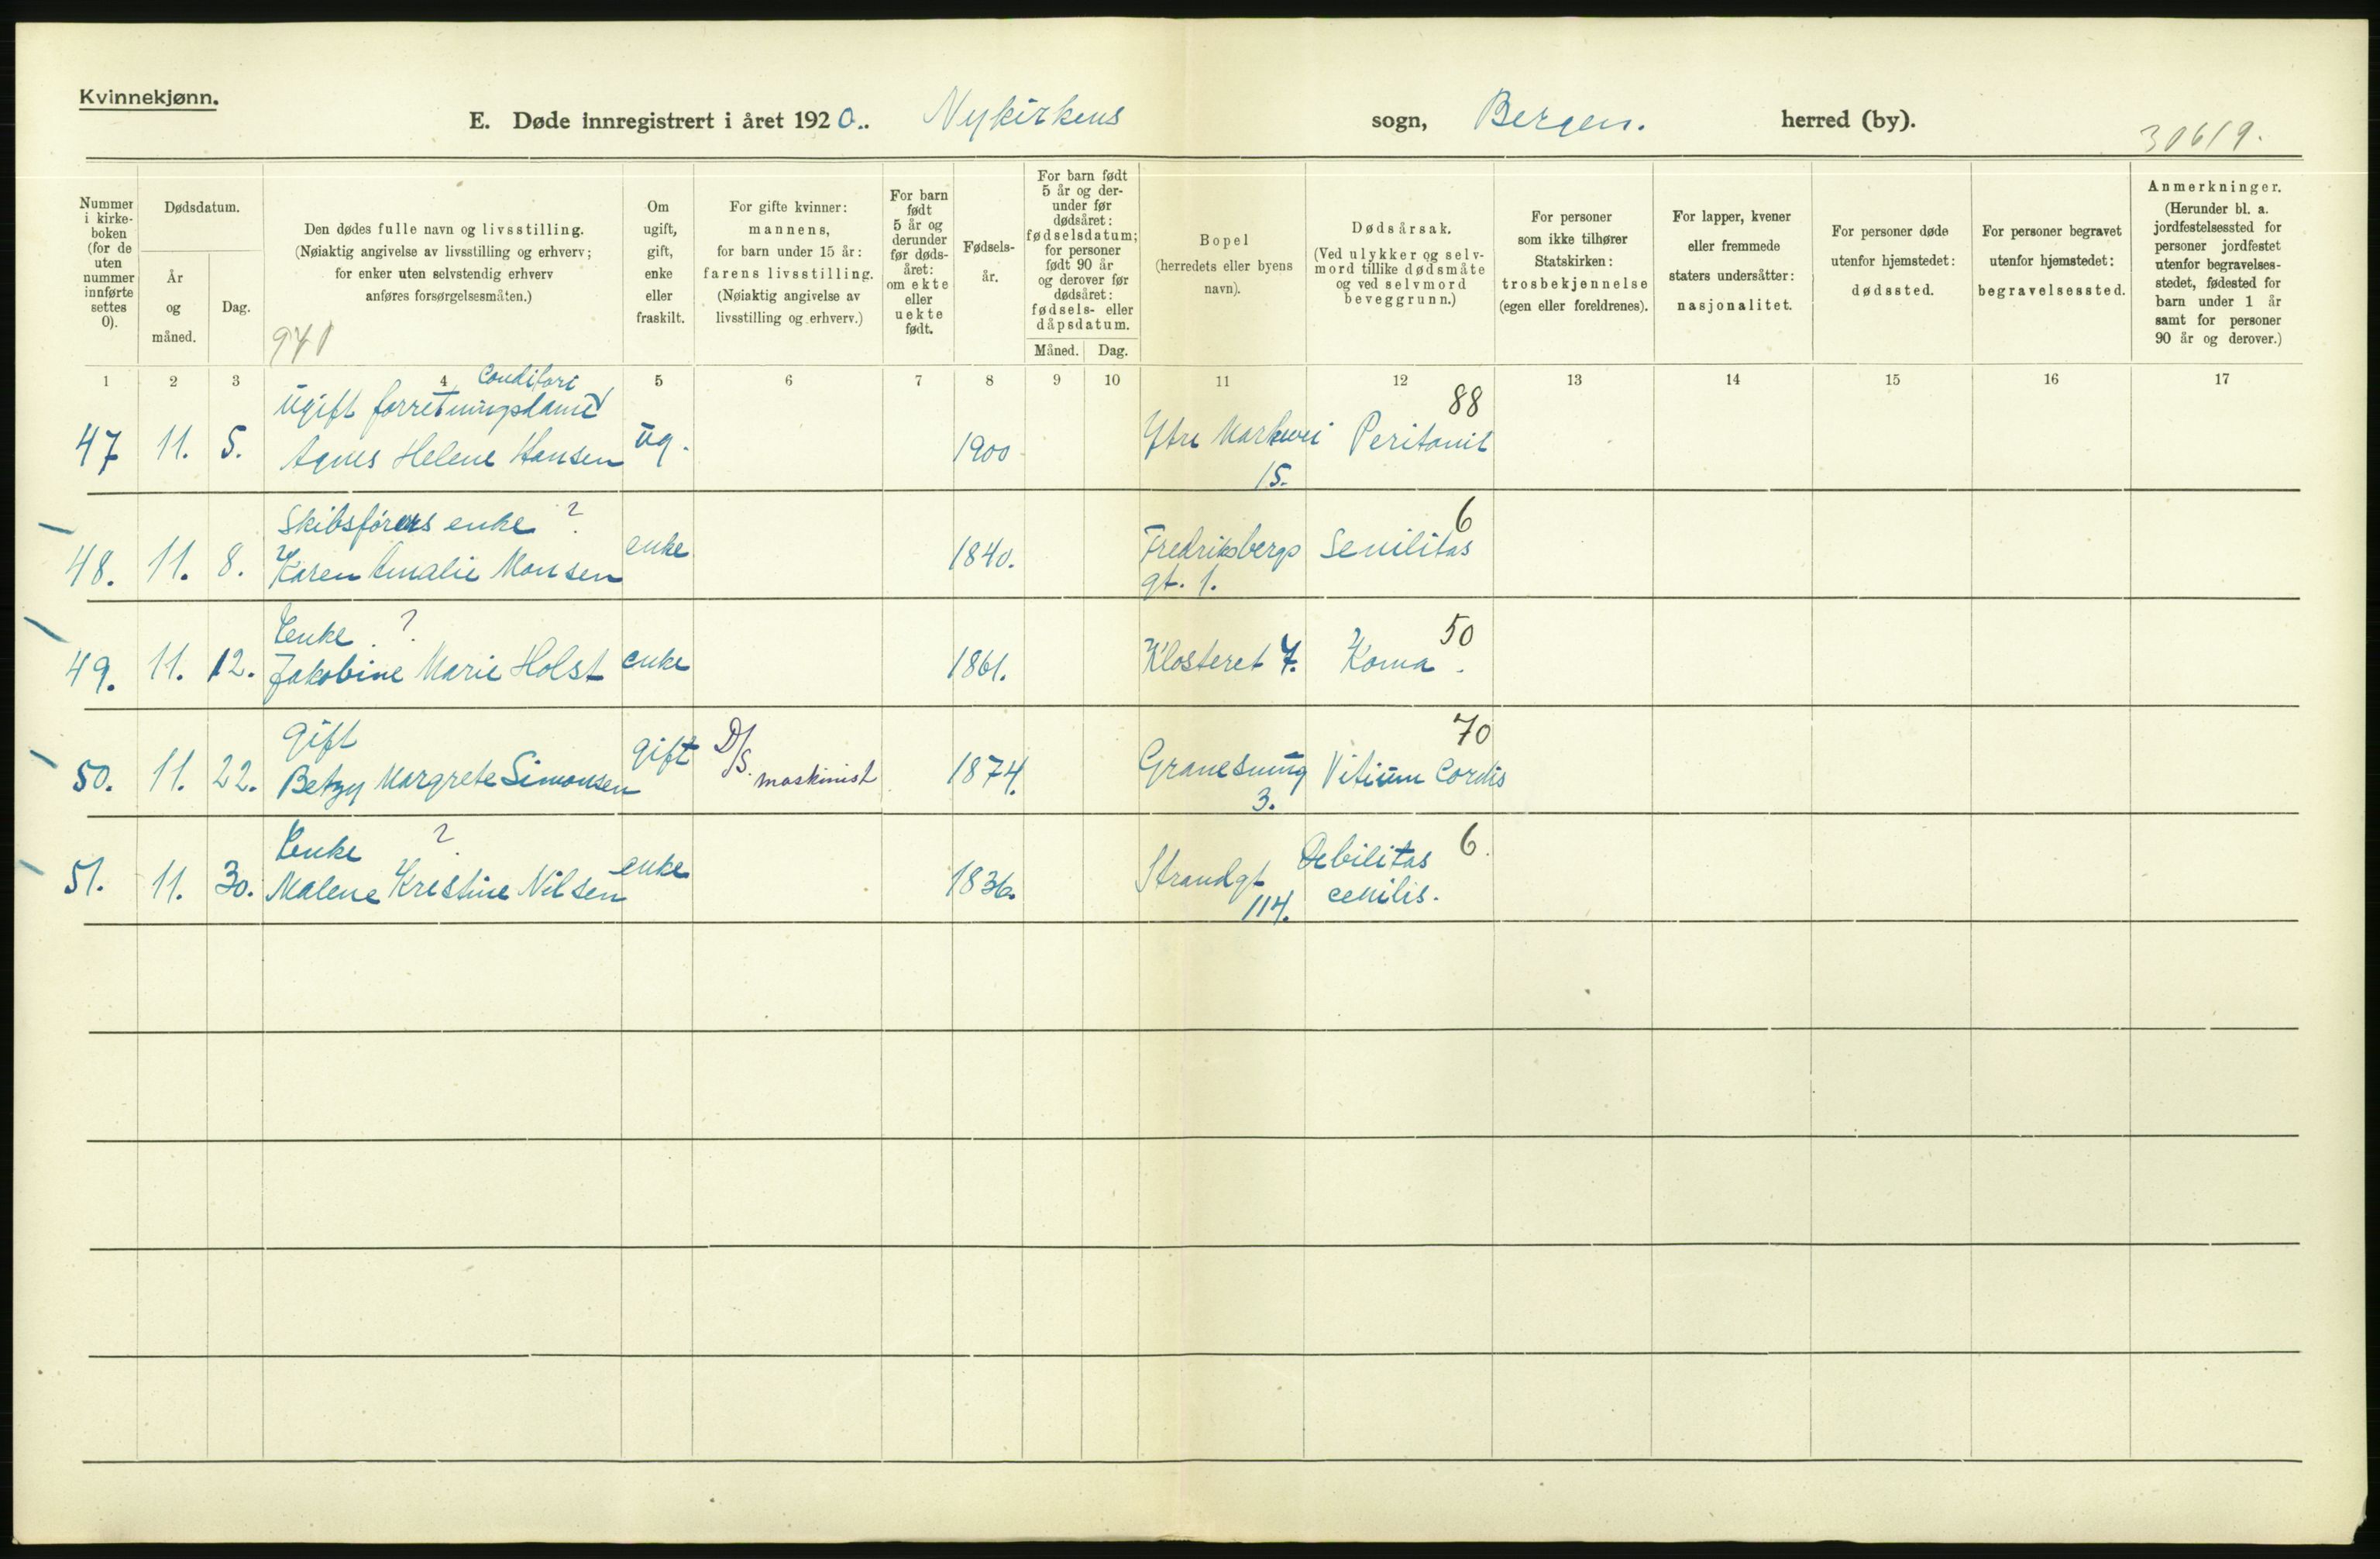 Kvinnekjønn.
E. Døde innregistrert i året 1920.. Nykirkens sogn, Bergen. herred (by).
30619.
Nummer i kirke- boken (for de uten nummer innførte settes 0).
Dødsdatum.
År og måned.
Dag.
Den dødes fulle navn og livsstilling.
(Nøiaktig angivelse av livsstilling og erhverv;
for enker uten selvstendig erhverv
anføres forsørgelsesmåten.)
941
Om ugift, gift, enke eller fraskilt.
For gifte kvinner:
mannens,
for barn under 15 år:
farens livsstilling.
(Nøiaktig angivelse av
livsstilling og erhverv.)
For barn født 5 år og derunder før døds- året: om ekte eller uekte født.
Fødsels- år.
For barn født 5 år og der- under før dødsåret: fødselsdatum; for personer født 90 år og derover før dødsåret: fødsels- eller dåpsdatum.
Måned. Dag.
Bopel
(herredets eller byens
navn).
Dødsårsak.
(Ved ulykker og selv-
mord tillike dødsmåte
og ved selvmord
beveggrunn.)
For personer
som ikke tilhører
Statskirken:
trosbekjennelse
(egen eller foreldrenes).
For lapper, kvener
eller fremmede
staters undersåtter:
nasjonalitet.
For personer døde
utenfor hjemstedet:
dødssted.
For personer begravet
utenfor hjemstedet:
begravelsessted.
Anmerkninger.
(Herunder bl. a.
jordfestelsessted for
personer jordfestet
utenfor begravelses-
stedet, fødested for
barn under 1 år
samt for personer
90 år og derover.)
1 2 3 4 5 6 7 8 9 10 11 12 13 14 15 16 17
Conditori
Ugift forretningsdame
88
47 11. 5. Agnes Helene Hansen ug. 1900 Ytre Markevei Peritonit
15.
Skibsførers enke ?
6
48. 11. 8. Karen Amalie Monsen enke 1840. Fredriksbergs Senilitas
gt. 1.
Enke ?
50
49. 11. 12. Jakobine Marie Holst enke 1861. Klosteret 7. Koma.
Gift
70
50. 11. 22. Betzy Margrete Simonsen gift D/S. maskinist 1874. Granesmug Vitium Cordis
3.
Enke ?
Debilitas 6.
51. 11. 30. Malene Kristine Nilsen enke 1836. Strandgt cenilis.
114.